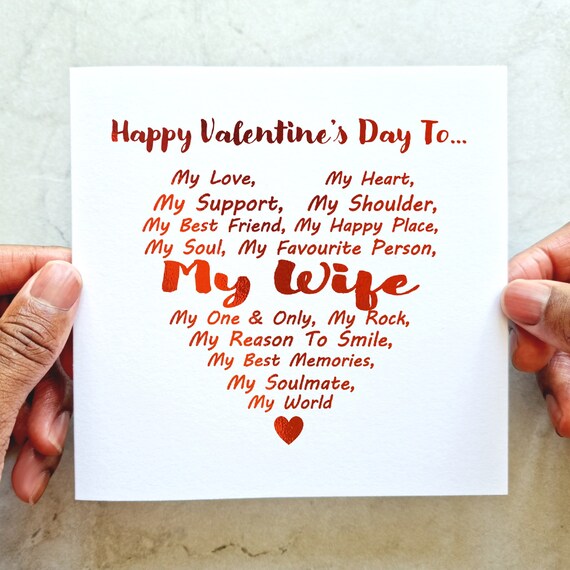 Happy Valentine's Day To...
My Love, My Heart,
My Support, My Shoulder,
My Best Friend, My Happy Place,
My Soul, My Favourite Person,
My Wife
My One & Only, My Rock,
My Reason To Smile,
My Best Memories,
My Soulmate,
My World